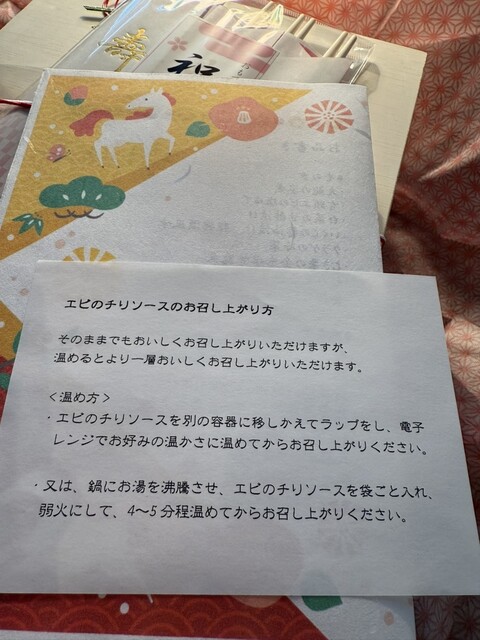 寿
和
エビのチリソースのお召し上がり方
そのままでもおいしくお召し上がりいただけますが、
温めるとより一層おいしくお召し上がりいただけます。
＜温め方＞
・エビのチリソースを別の容器に移しかえてラップをし、電子
レンジでお好みの温かさに温めてからお召し上がりください。
・又は、鍋にお湯を沸騰させ、エビのチリソースを袋ごと入れ、
弱火にして、4～5分程温めてからお召し上がりください。